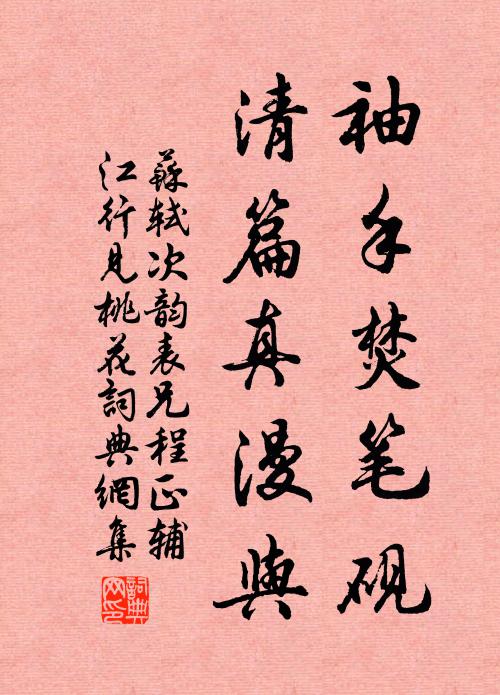 袖手焚笔砚
清篇真漫與
蘇轼次韵表兄程正辅
江行見桃花詞典網集
詞典
网印